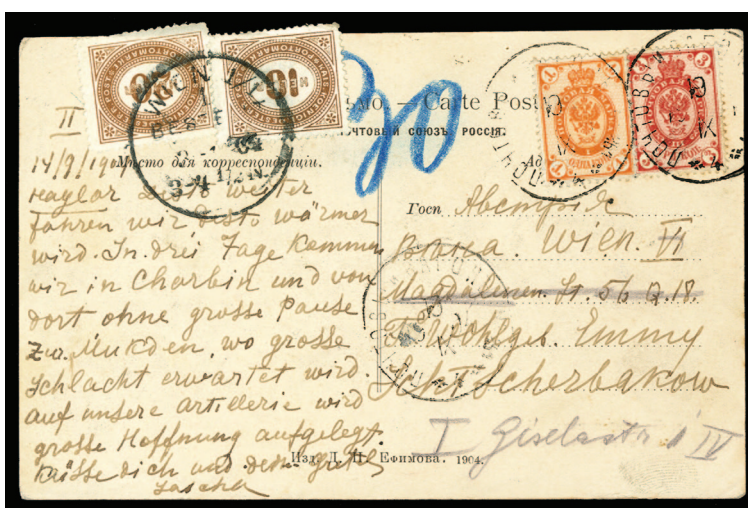 30
Carte Post
ПОЧТОВЫЙ СОЮЗЪ РОССІЯ.
Мѣсто для корреспонденціи.
II
14/9/1904
desto weiter
fahren wir desto wärmer
wird. In drei Tage kommen
wir in Charbin und von
dort ohne grosse Pause
zu Mukden, wo grosse
Schlacht erwartet wird
auf unsere artillerie wird
grosse Hoffnung aufgelegt.
Küsse dich und dein Gretel
Sascha
WIEN
BESTELLT
10
1
3
Госп
Австрія
Вѣна. Wien. VI
Magdalenen St. 56 Q. 18.
Wohlgeb. Emmy
Schtscherbakow
I Giselastr 1 IV
Изд. Д. П. Ефимова. 1904.